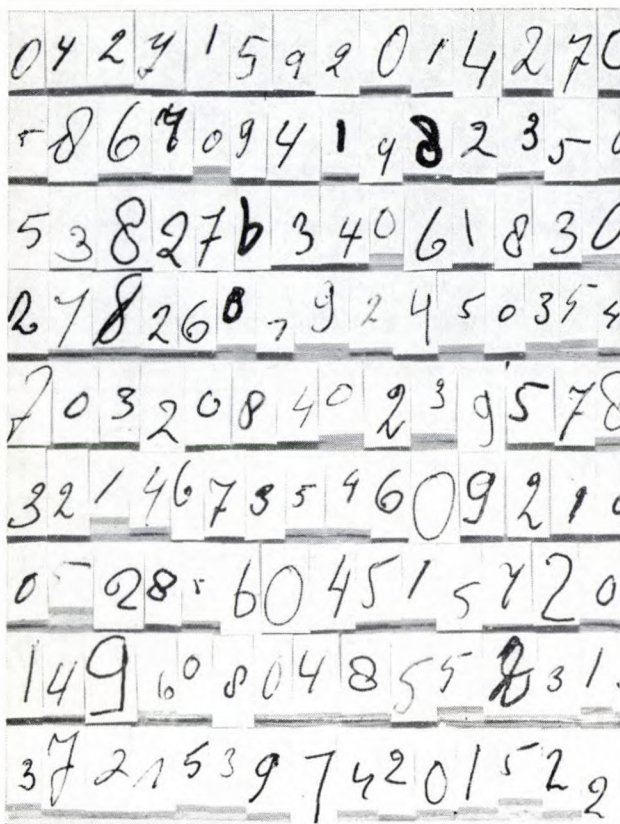 0 4 2 7 1 5 9 2 0 1 4 2 7 0
5 8 6 7 0 9 4 1 4 8 2 3 5 0
5 3 8 2 7 6 3 4 0 6 1 8 3 0
2 7 8 2 6 8 7 9 2 4 5 0 3 5 4
7 0 3 2 0 8 4 0 2 3 9 5 7 8
3 2 1 4 6 7 3 5 4 6 0 9 2 1
0 5 2 8 5 6 0 4 5 1 5 7 2 0
1 4 9 6 0 8 0 4 8 5 5 2 3 1
3 7 2 1 5 3 9 7 4 2 0 1 5 2 2